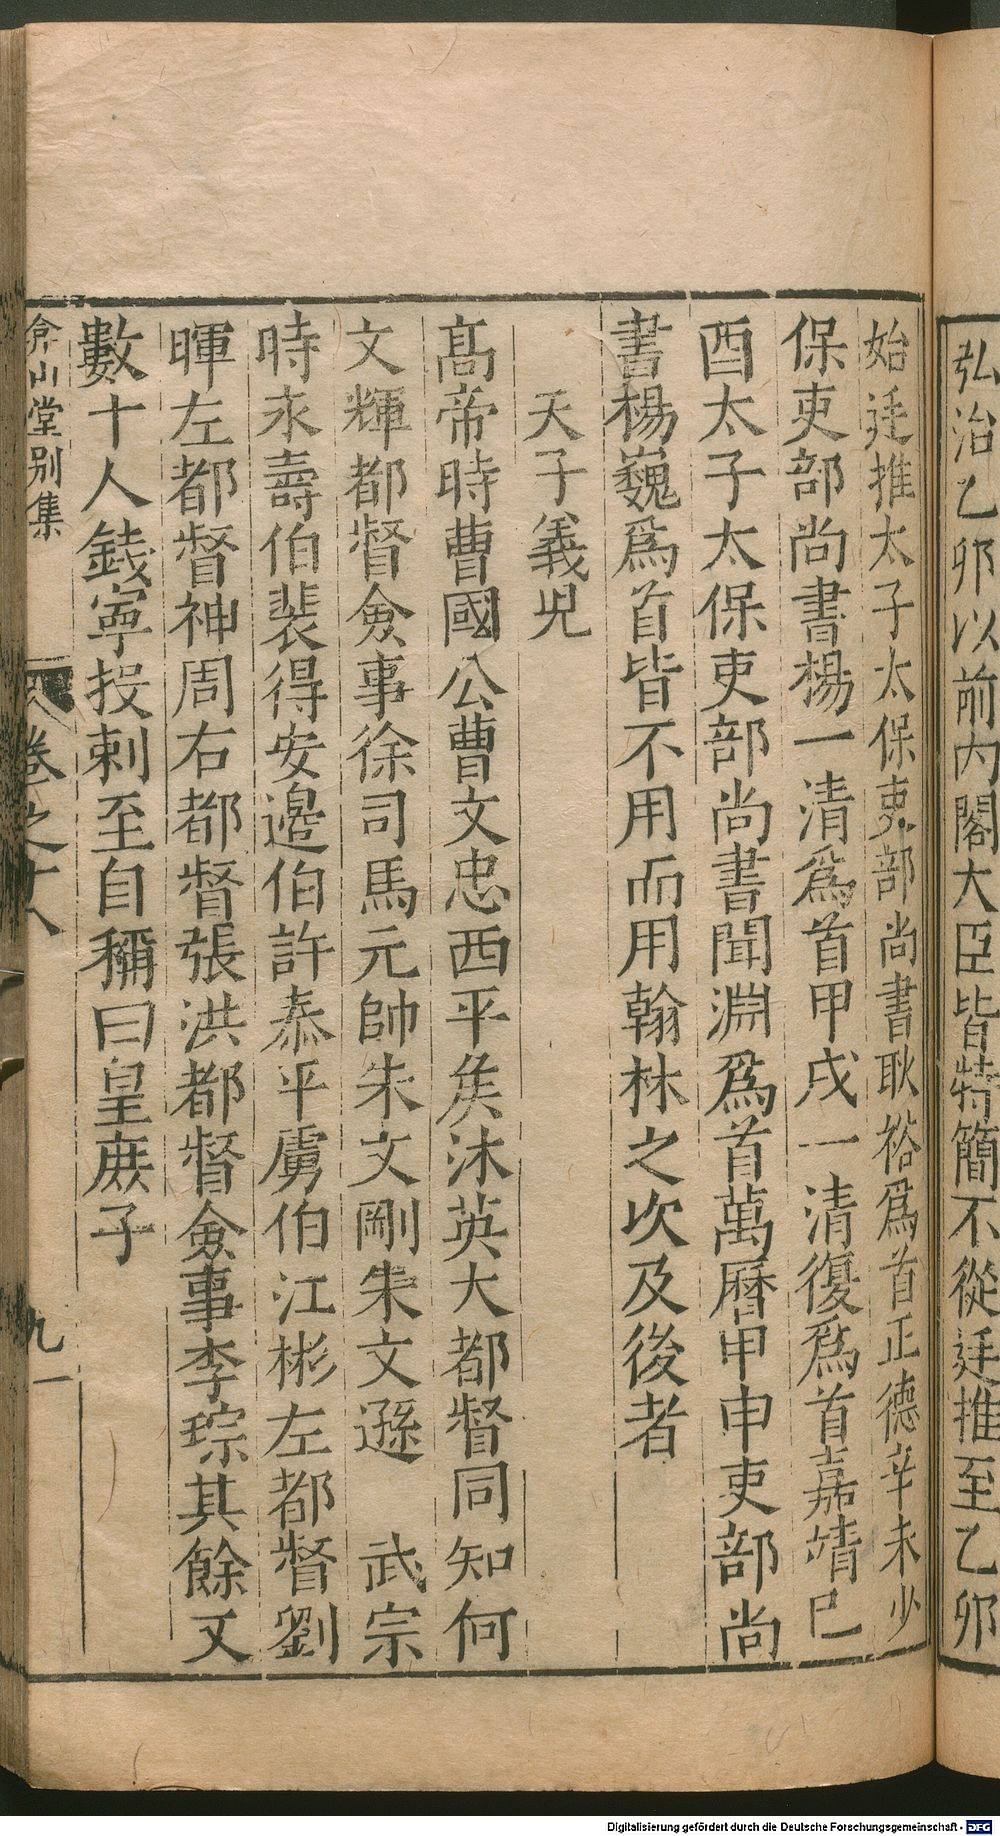 弘治乙卯以前內閣大臣皆特簡不從廷推至乙卯
始廷推太子太保吏部尚書耿裕爲首正德辛未少
保吏部尚書楊一清爲首甲戌一清復爲首嘉靖巳
酉太子太保吏部尚書聞淵爲首萬曆甲申吏部尚
書楊巍爲首皆不用而用翰林之次及後者
天子義兒
髙帝時曹國公曹文忠西平矦沐英大都督同知何
文輝都督僉事徐司馬元帥朱文剛朱文遜 武宗
時永壽伯裴得安邉伯許泰平虜伯江彬左都督劉
暉左都督神周右都督張洪都督僉事李琮其餘又
數十人錢寧投刺至自稱曰皇庶子
弇山堂别集 卷之十八 九一
Digitalisierung gefördert durch die Deutsche Forschungsgemeinschaft - DFG